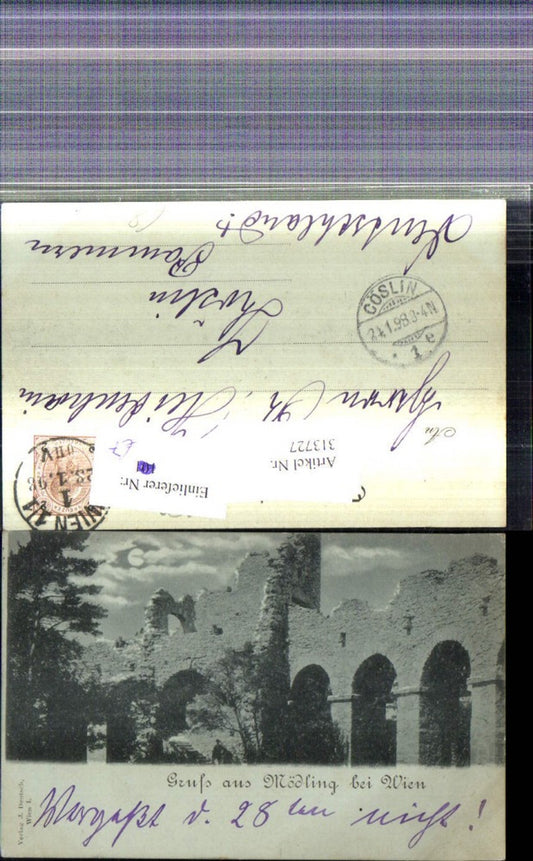 Deutschland
Pommern
Cöslin
CÖSLIN
24.1.98.3-4N
1 e
An
Herrn
Artikel Nr.
313727
Einlieferer Nr.
WIEN 1/1
1
23.1.98
Gruß aus Mödling bei Wien
Verlag J. Deutsch,
Wien I.
Vergeßt d. 28ten nicht!